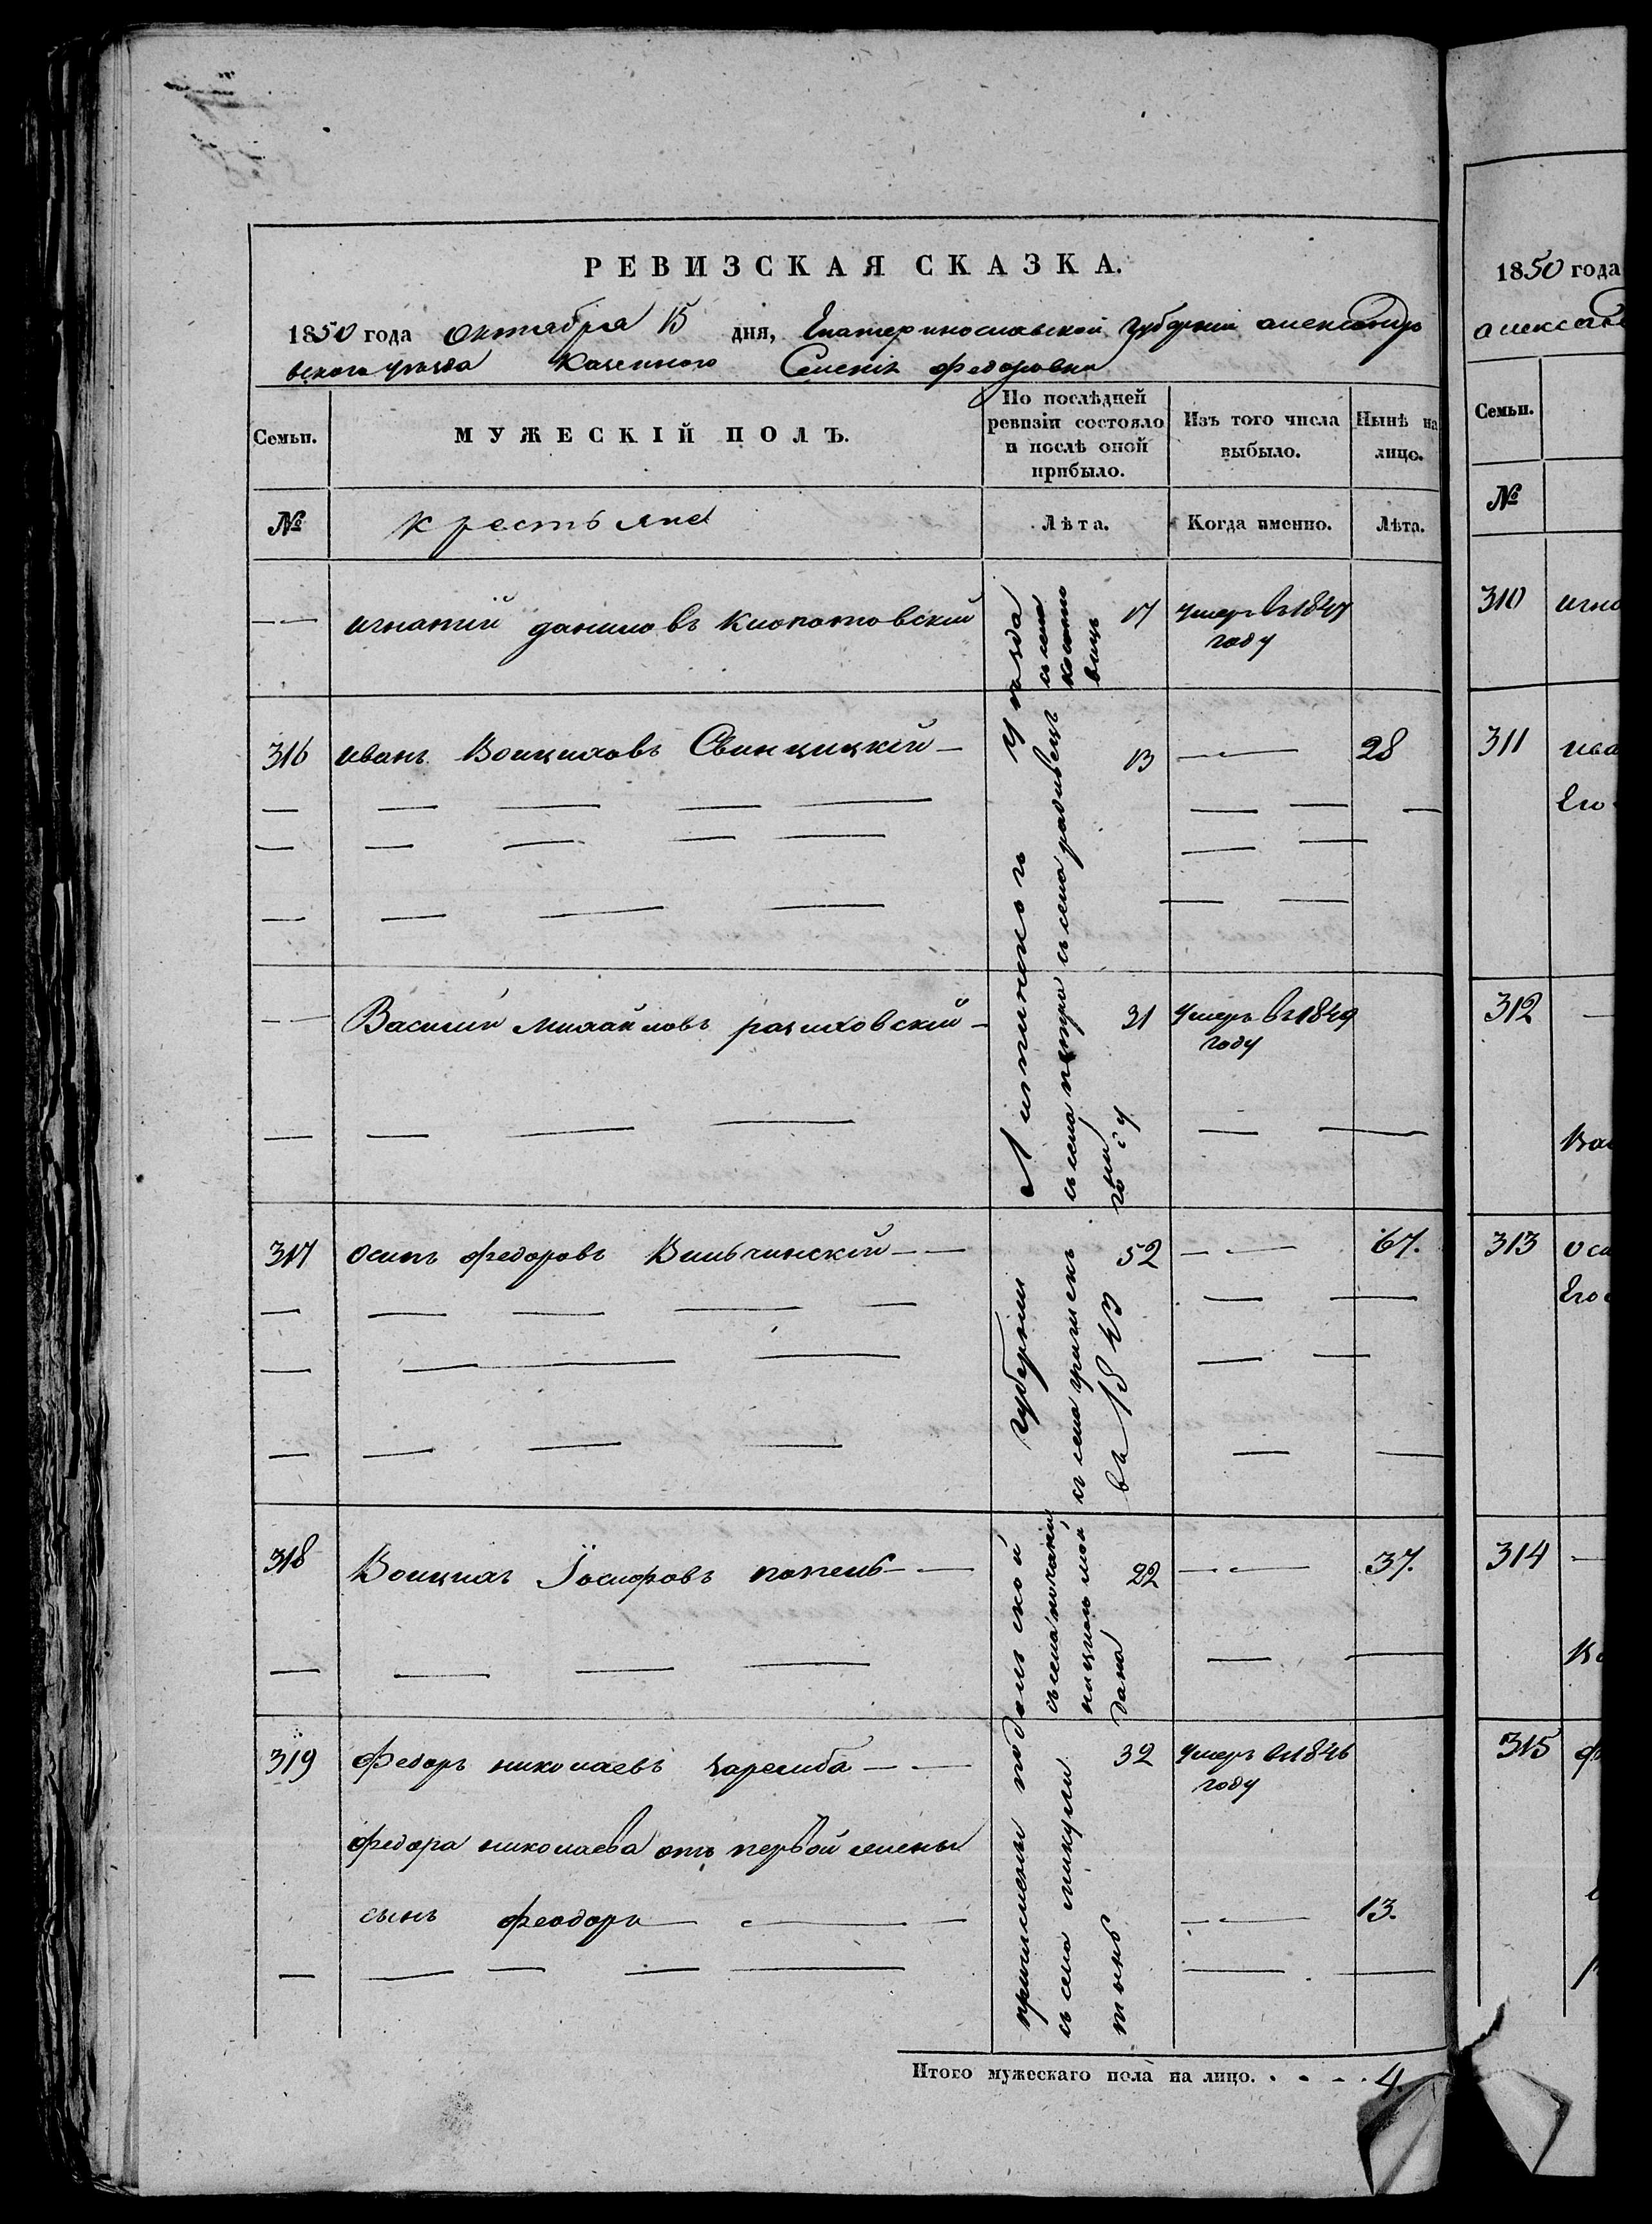 РЕВИЗСКАЯ СКАЗКА.
1850 года Октября 15 дня, Екатеринославской губернии александро
вского уѣзда Казенного Селенія федоровки
Семьи. МУЖЕСКІЙ ПОЛЪ. По послѣдней ревизіи состояло и послѣ оной прибыло. Изъ того числа выбыло. Нынѣ на лицо.
№ крестьяне Лѣта. Когда именно. Лѣта.
игнатій даниловъ Клопотовскій 17 умеръ въ 1847
году
316 иванъ Войциховъ Свинцицкій 13 28
Василій михайловъ рациховскій 31 умеръ въ 1849
году
317 осипъ федоровъ Вильчинскій 52 67.
318 Войцихъ Іосифовъ попель 22 37.
319 Федоръ николаевъ заремба 32 умеръ въ 1846
году
федора николаева отъ первой жены
сынъ феодоръ 13.
причислены подольской губерніи Литинского уѣзда
съ села микули
нской
въ 1843
году
Итого мужескаго пола на лицо. 4.
1850 года
александ
Семьи.
№
310 игна
311 ива
Его
312
Вас
313 оси
Его
314
315